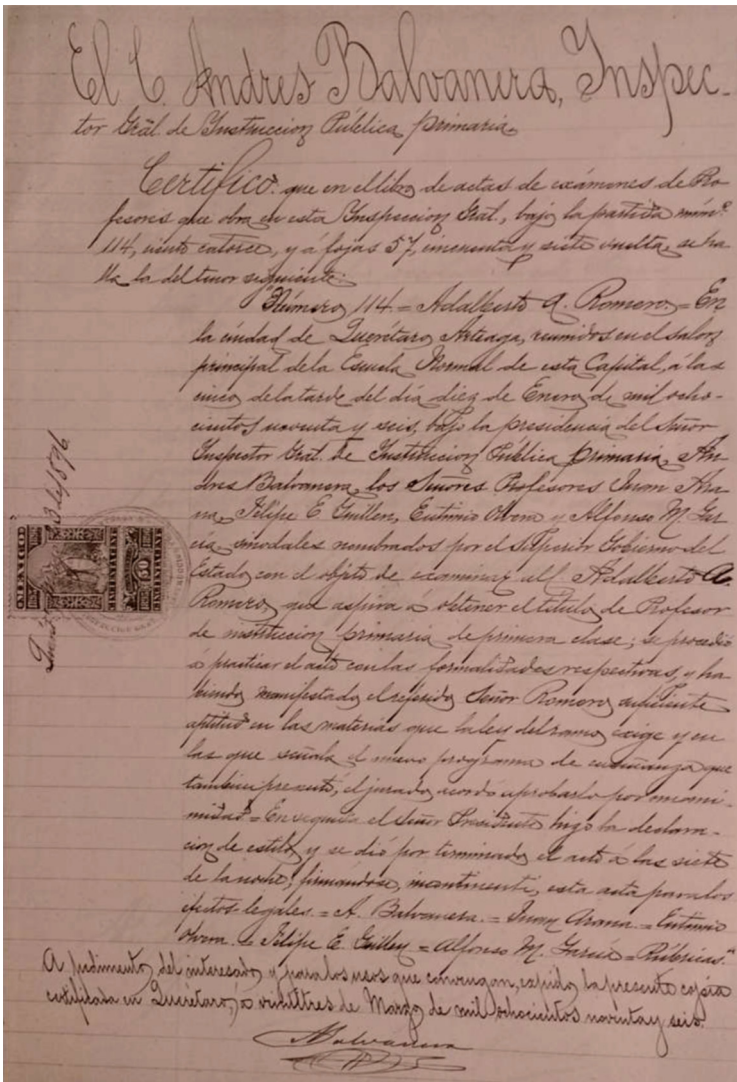 El C. Andres Balvanera, Inspec-
tor Gral. de Instruccion Pública primaria.
Certifico: que en el libro de actas de exámenes de Pro-
fesores que obra en esta Inspeccion Gral., bajo la partida núm.º
114, ciento catorce, y á fojas 57, cincuenta y siete vuelta, se ha-
lla la del tenor siguiente:
"Número 114. = Adalberto A. Romero. = En
la ciudad de Querétaro Arteaga, reunidos en el salon
principal de la Escuela Normal de esta Capital, á las
cinco de la tarde del día diez de Enero de mil ocho-
cientos noventa y seis, bajo la presidencia del Señor
Inspector Gral. de Instruccion Pública primaria, An-
dres Balvanera, los Señores Profesores Juan Ara-
na, Felipe E. Guillen, Eutimio Olvera y Alfonso M. Gar-
cía, sinodales nombrados por el Superior Gobierno del
Estado con el objeto de examinar al C. Adalberto A.
Romero, que aspira á obtener el título de Profesor
de instruccion primaria de primera clase; se procedió
á practicar el acto con las formalidades respectivas, y ha-
biendo manifestado el referido Señor Romero suficiente
aptitud en las materias que la ley del ramo exige y en
las que señala el nuevo programa de enseñanza que
tambien presentó, el jurado acordó aprobarlo por unani-
midad. = En seguida el Señor Presidente hizo la declara-
cion de estilo y se dió por terminado el acto á las siete
de la noche, firmándose, incontinenti, esta acta para los
efectos legales. = A. Balvanera. = Juan Arana. = Eutimio
Olvera. = Felipe E. Guillen = Alfonso M. García = Rúbricas."
A pedimento del interesado y para los usos que convengan, expido la presente copia
certificada en Querétaro, á veintitres de Marzo de mil ochocientos noventa y seis.
Balvanera
MEXICO
50
CINCUENTA CENT
de 1896